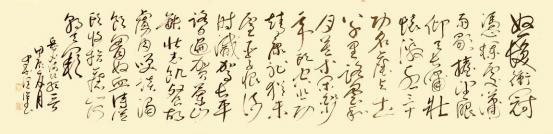 怒髮衝冠
憑欄處瀟
雨歇擡望眼
仰天長嘯壯
懷激烈三十
功名塵與土
八千里路雲和
月莫等閒白少
年頭空悲切
靖康恥猶未
雪臣子恨何
時滅駕長車
踏破賀蘭山
缺壯志飢餐胡
虜肉笑談渴
飲匈奴血待從
頭收拾舊山河
朝天闕